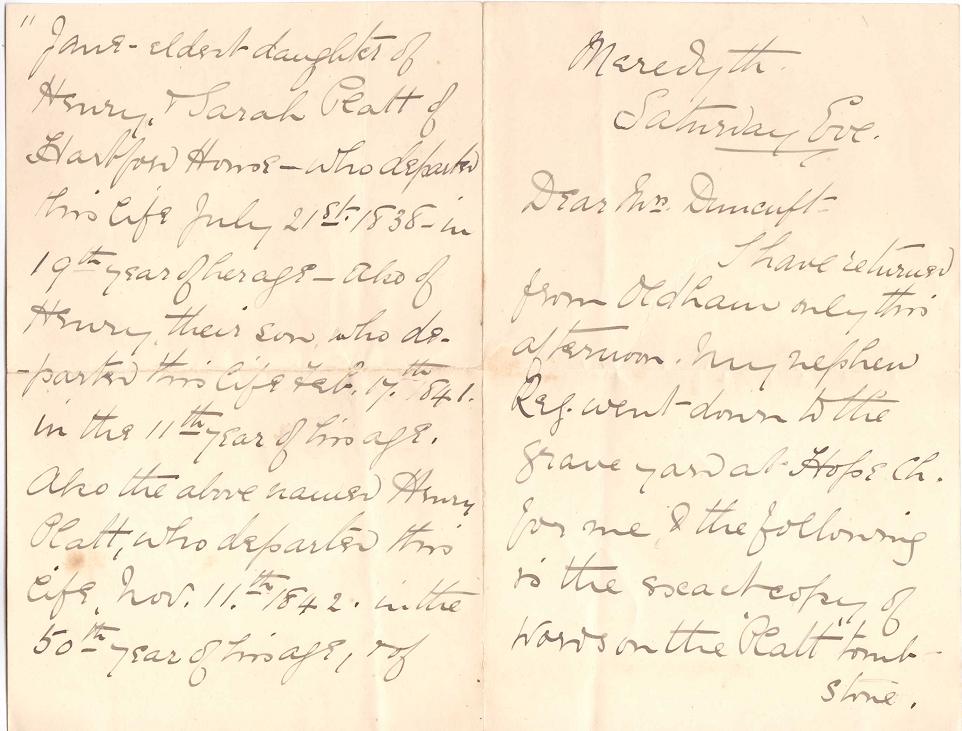 Meredyth.
Saturday Eve.
Dear Mrs. Duncuft-
I have returned
from Oldham only this
afternoon. My nephew
Reg. went down to the
grave yard at Hope Ch.
for me & the following
is the exact copy of
words on the "Platt" tomb-
stone.
" Jane - eldest daughter of
Henry, & Sarah Platt of
Hartford House - who departed
this life July 21st. 1838 - in
19th year of her age - Also of
Henry, their son, who de-
-parted this life Feb. 17.th 1841.
in the 11th year of his age.
Also the above named Henry
Platt, who departed this
life, Nov. 11.th 1842. in the
50th year of his age, & of